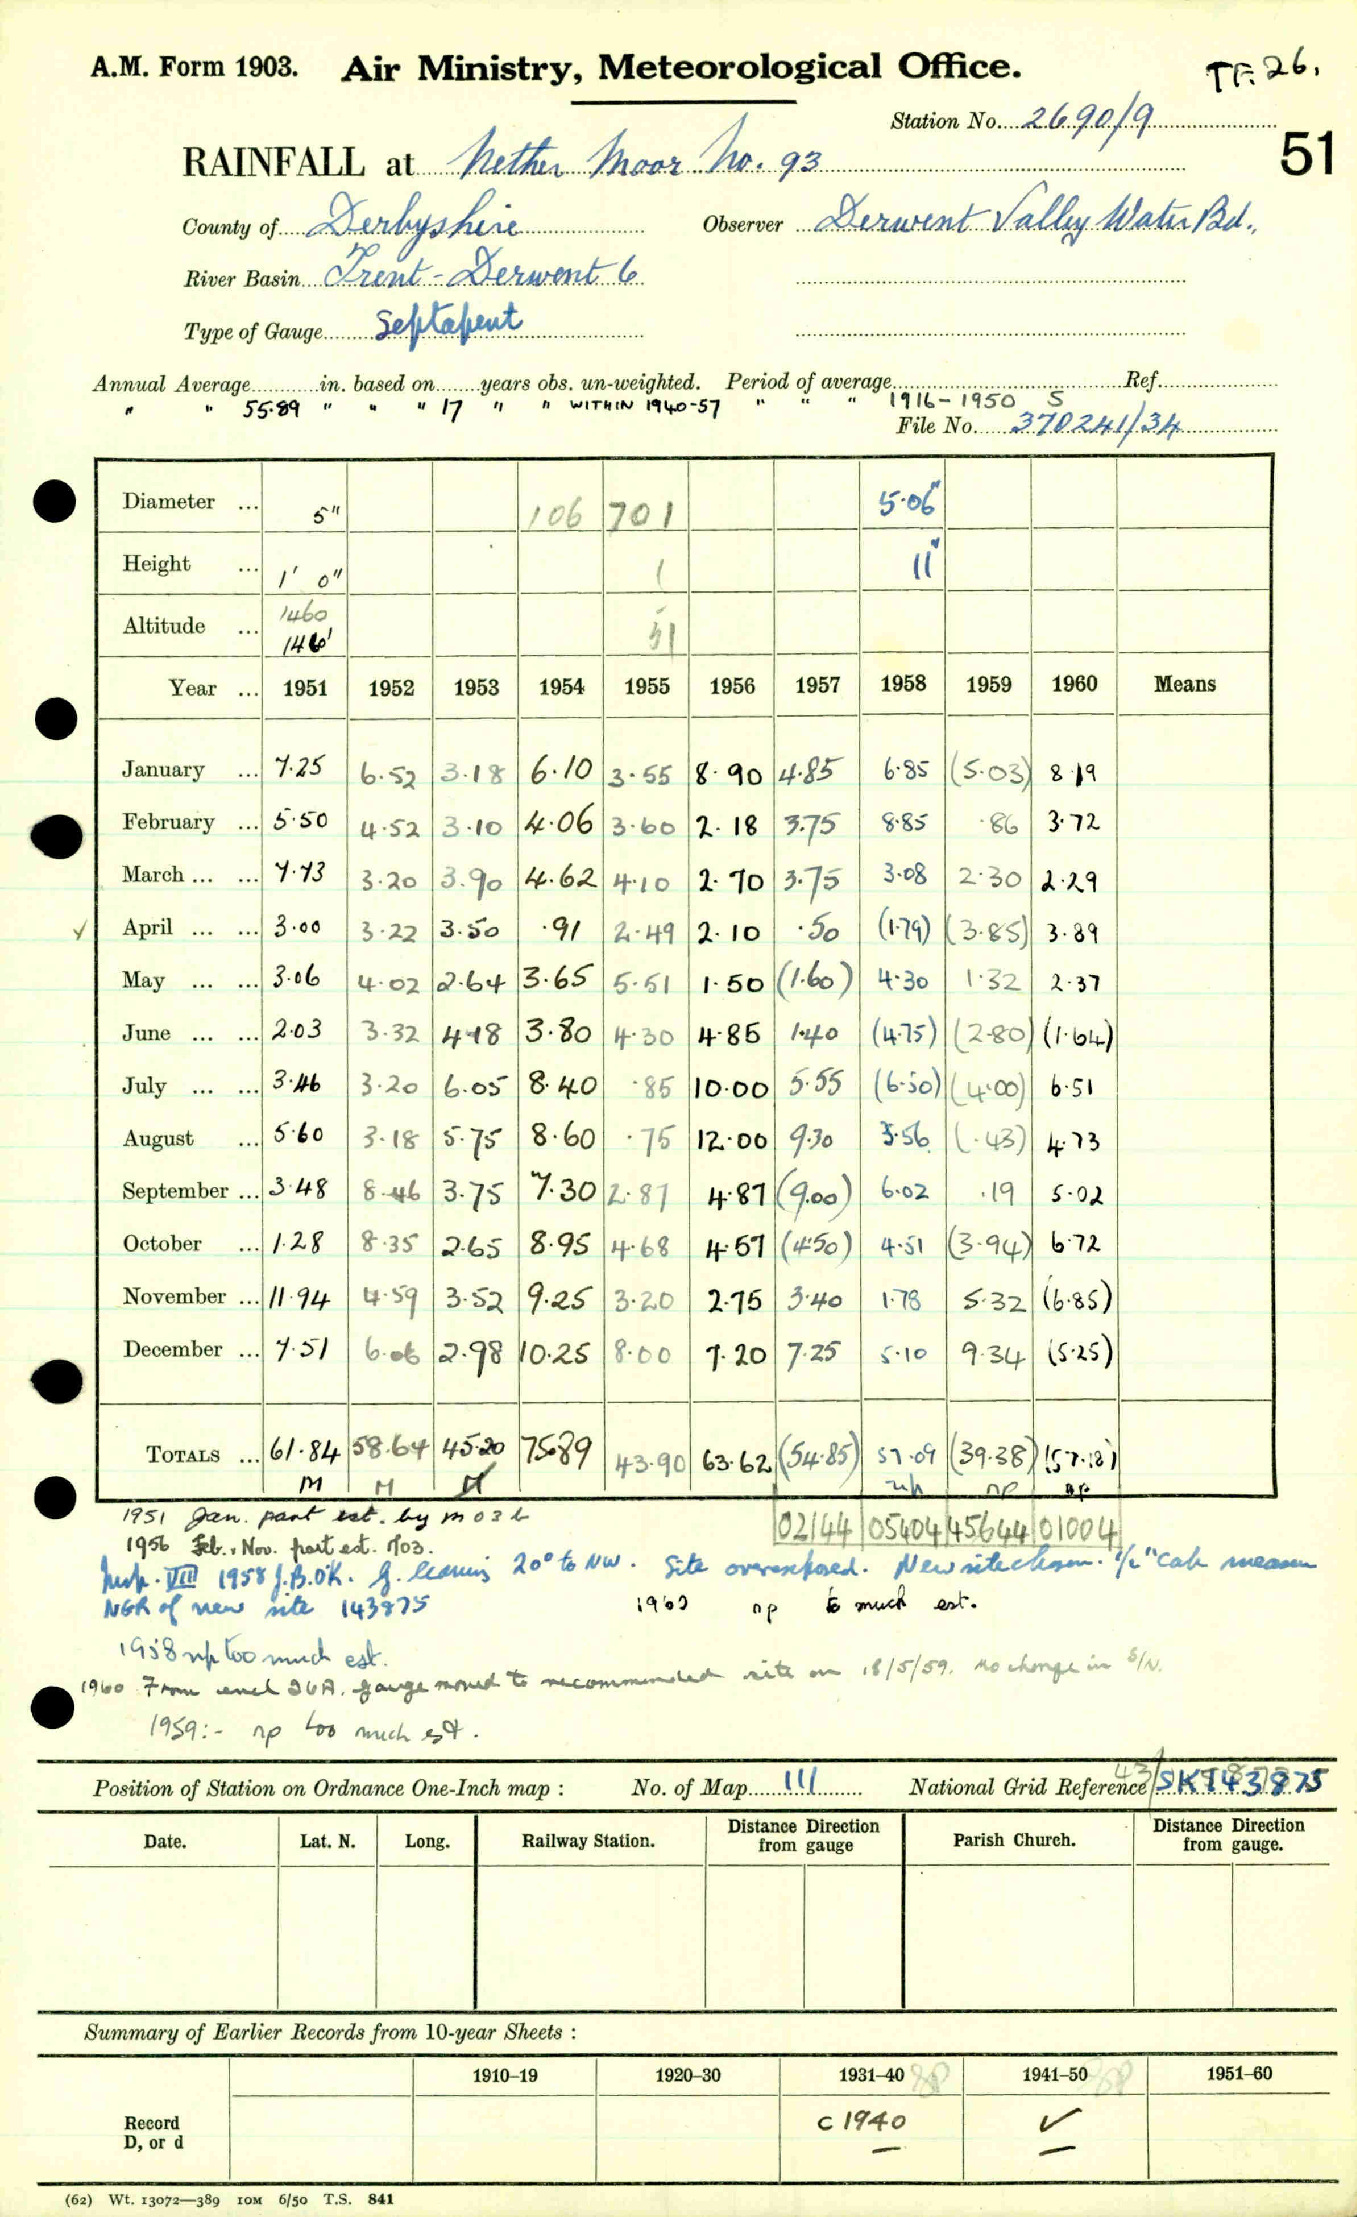 A.M. Form 1903. Air Ministry, Meteorological Office. TF.26.
Station No. 2690/9
RAINFALL at Nether Moor No. 93 51
County of Derbyshire Observer Derwent Valley Water Bd.,
River Basin Trent - Derwent 6
Type of Gauge Septapent
Annual Average in. based on years obs. un-weighted. Period of average Ref.
" " 55·89 " " " 17 " " WITHIN 1940-57 " " " 1916-1950 S
File No. 370241/34
Diameter ... 5" 106 701 5·06"
Height ... 1' 0" 1 11"
1460
Altitude ... 146' 51
Year ... 1951 1952 1953 1954 1955 1956 1957 1958 1959 1960 Means
January ... 7·25 6·52 3·18 6·10 3·55 8·90 4·85 6·85 (5·03) 8·19
February ... 5·50 4·52 3·10 4·06 3·60 2·18 3·75 8·85 ·86 3·72
March ... ... 7·73 3·20 3·90 4·62 4·10 2·70 3·75 3·08 2·30 2·29
✓ April ... ... 3·00 3·22 3·50 ·91 2·49 2·10 ·50 (1·79) (3·85) 3·89
May ... ... 3·06 4·02 2·64 3·65 5·51 1·50 (1·60) 4·30 1·32 2·37
June ... ... 2·03 3·32 4·18 3·80 4·30 4·85 1·40 (4·75) (2·80) (1·64)
July ... ... 3·46 3·20 6·05 8·40 ·85 10·00 5·55 (6·50) (4·00) 6·51
August ... 5·60 3·18 5·75 8·60 ·75 12·00 9·30 3·56 (·43) 4·73
September ... 3·48 8·46 3·75 7·30 2·87 4·87 (9·00) 6·02 ·19 5·02
October ... 1·28 8·35 2·65 8·95 4·68 4·57 (4·50) 4·51 (3·94) 6·72
November ... 11·94 4·59 3·52 9·25 3·20 2·75 3·40 1·78 5·32 (6·85)
December ... 7·51 6·06 2·98 10·25 8·00 7·20 7·25 5·10 9·34 (5·25)
TOTALS ... 61·84 58·64 45·20 75·89 43·90 63·62 (54·85) 57·09 (39·38) (57·18)
M M M np np np
1951 Jan. part est. by MO3b 02144 05404 45644 01004
1956 Feb., Nov. part est. MO3.
Insp. VIII 1958 J.B. OK. G. leaning 20° to NW. Site overexposed. New site chosen. 1/2" cap measure
NGR of new site 143875 1960 np to much est.
1958 np too much est.
1960 From encl 26A. gauge moved to recommended site on 18/5/59. No change in S/N.
1959:- np too much est.
Position of Station on Ordnance One-Inch map : No. of Map 111 National Grid Reference 43/ SK143875
Date. Lat. N. Long. Railway Station. Distance from Direction gauge Parish Church. Distance Direction from gauge.
Summary of Earlier Records from 10-year Sheets :
1910–19 1920–30 1931–40 1941–50 1951–60
Record D, or d c 1940 ✓
(62) Wt. 13072—389 10M 6/50 T.S. 841